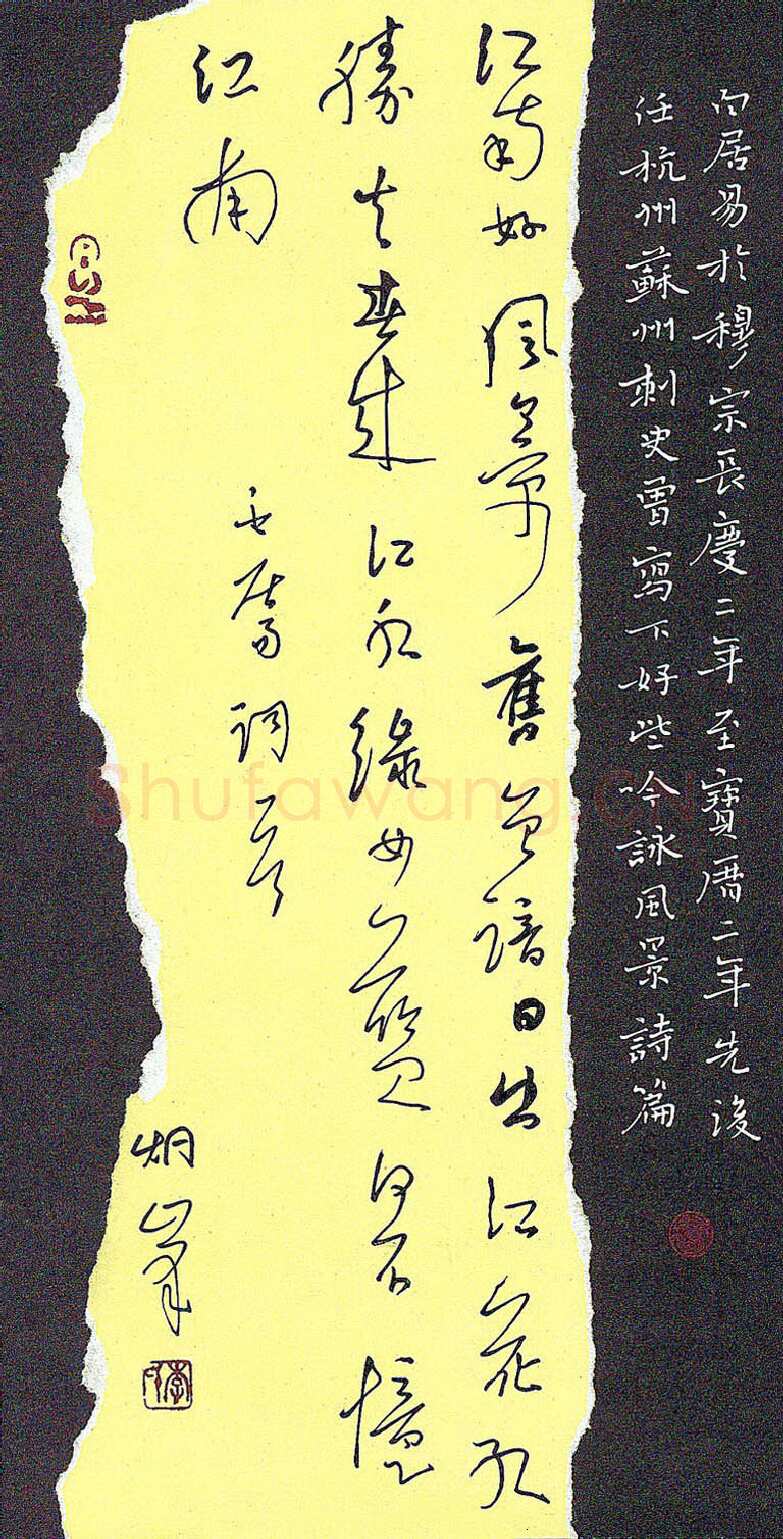 白居易於穆宗長慶二年至寶曆二年先後
任杭州蘇州刺史曾寫下好些吟詠風景詩篇
江南好風景舊曾諳日出江花紅
勝火春來江水綠如藍能不憶
江南
白居易詞一首
峯
Shufawang.CN